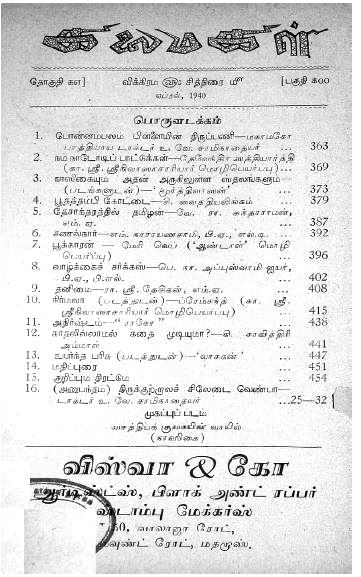 கலைமகள்
தொகுதி கஎ] விக்கிரம ௵ சித்திரை ௴ [பகுதி க00
ஏப்ரல், 1940
பொருளடக்கம்
1. பொன்னம்பலம் பிள்ளையின் திருப்பணி—மகாமகோ
பாத்தியாய டாக்டர் உ. வே. சாமிநாதையர் 363
2. நம் நாடோடிப் பாட்டுக்கள்—தேவேந்திர ஸத்தியார்த்தி
(கா. ஸ்ரீ. ஸ்ரீநிவாஸாசாரியார் மொழிபெயர்ப்பு) 369
3. நாஸிகையும் அதன் அருகிலுள்ள ஸ்தலங்களும்
(படங்களுடன்)—' மூர்த்திவாஸன்' 373
4. பூதத்தம்பி கோட்டை—சி. வைத்தியலிங்கம் 379
5. தேசாந்தரத்தில் தமிழன்—வே. ரா. சுந்தரராமன்,
எம். ஏ. 387
6. சணல்நார்—எம். நாராயணசாமி, பி.ஏ., எல்.டி. 392
7. பூக்காரன் — மேரி வெப் ('ஆண்டாள்' மொழி
பெயர்ப்பு) 396
8. வாழ்க்கைச் சர்க்கஸ்—பெ. நா. அப்புஸ்வாமி ஐயர்,
பி.ஏ., பி.எல். 402
9. தனிமை—ரா. ஸ்ரீ. தேசிகன், எம்.ஏ. 408
10. நிர்மலா (படத்துடன்)—ப்ரேம்சந்த் (கா. ஸ்ரீ.
ஸ்ரீநிவாஸாசாரியார் மொழிபெயர்ப்பு) 415
11. அதிர்ஷ்டம்—" ராகோ" 438
12. காதலில்லாமல் கதை முடியுமா?—கி. சாவித்திரி
அம்மாள் 441
13. உயர்ந்த பரிசு (படத்துடன்)—'வாசகன்' 447
14. மதிப்புரை 451
15. குறிப்புத் திரட்டு 454
16. (அனுபந்தம்) திருக்குற்றாலச் சிலேடை வெண்பா—
டாக்டர் உ. வே. சாமிநாதையர் ...25—32]
முகப்புப் படம்
வசந்திபக் குகையின் வாயில்
(நாஸிகை)
விஸ்வா & கோ
ஆர்டிஸ்ட்ஸ், பிளாக் அண்ட் ரப்பர்
ஸ்டாம்பு மேக்கர்ஸ்
30, வாலாஜா ரோட்,
மவுண்ட் ரோட், மதறாஸ்.